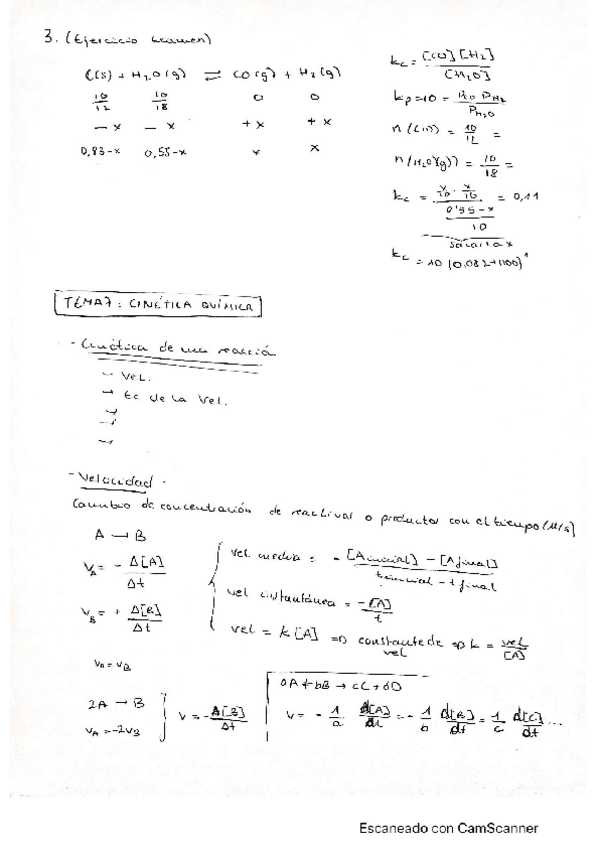 3. (Ejercicio examen)
C(s) + H2O(g) ⇌ CO(g) + H2(g)
10/12 10/18 0 0
- x - x + x + x
0,83-x 0,55-x x x
kc = [CO][H2] / [H2O]
kp = 10 = PCO PH2 / PH2O
n(C(s)) = 10/12 =
n(H2O(g)) = 10/18 =
kc = x/10 · x/10 / 0'55-x / 10 = 0,11
sacaría x
kc = 10 (0,082·1100)
TEMA 7: CINÉTICA QUÍMICA
- Cinética de una reacción
- Vel.
→ Ec de la Vel.
- Velocidad.
Cambio de concentración de reactivos o productos con el tiempo (M/s)
A → B
VA = - Δ[A] / Δt
VB = + Δ[B] / Δt
VA = VB
vel media = - [A inicial] - [A final] / t inicial - t final
vel instantánea = - [A] / t
vel = k [A] ⇒ constante de vel ⇒ k = vel / [A]
2A → B
VA = -2VB
V = - Δ[B] / Δt
aA + bB → cC + dD
V = - 1/a d[A]/dt = - 1/b d[B]/dt = 1/c d[C]/dt ...
Escaneado con CamScanner